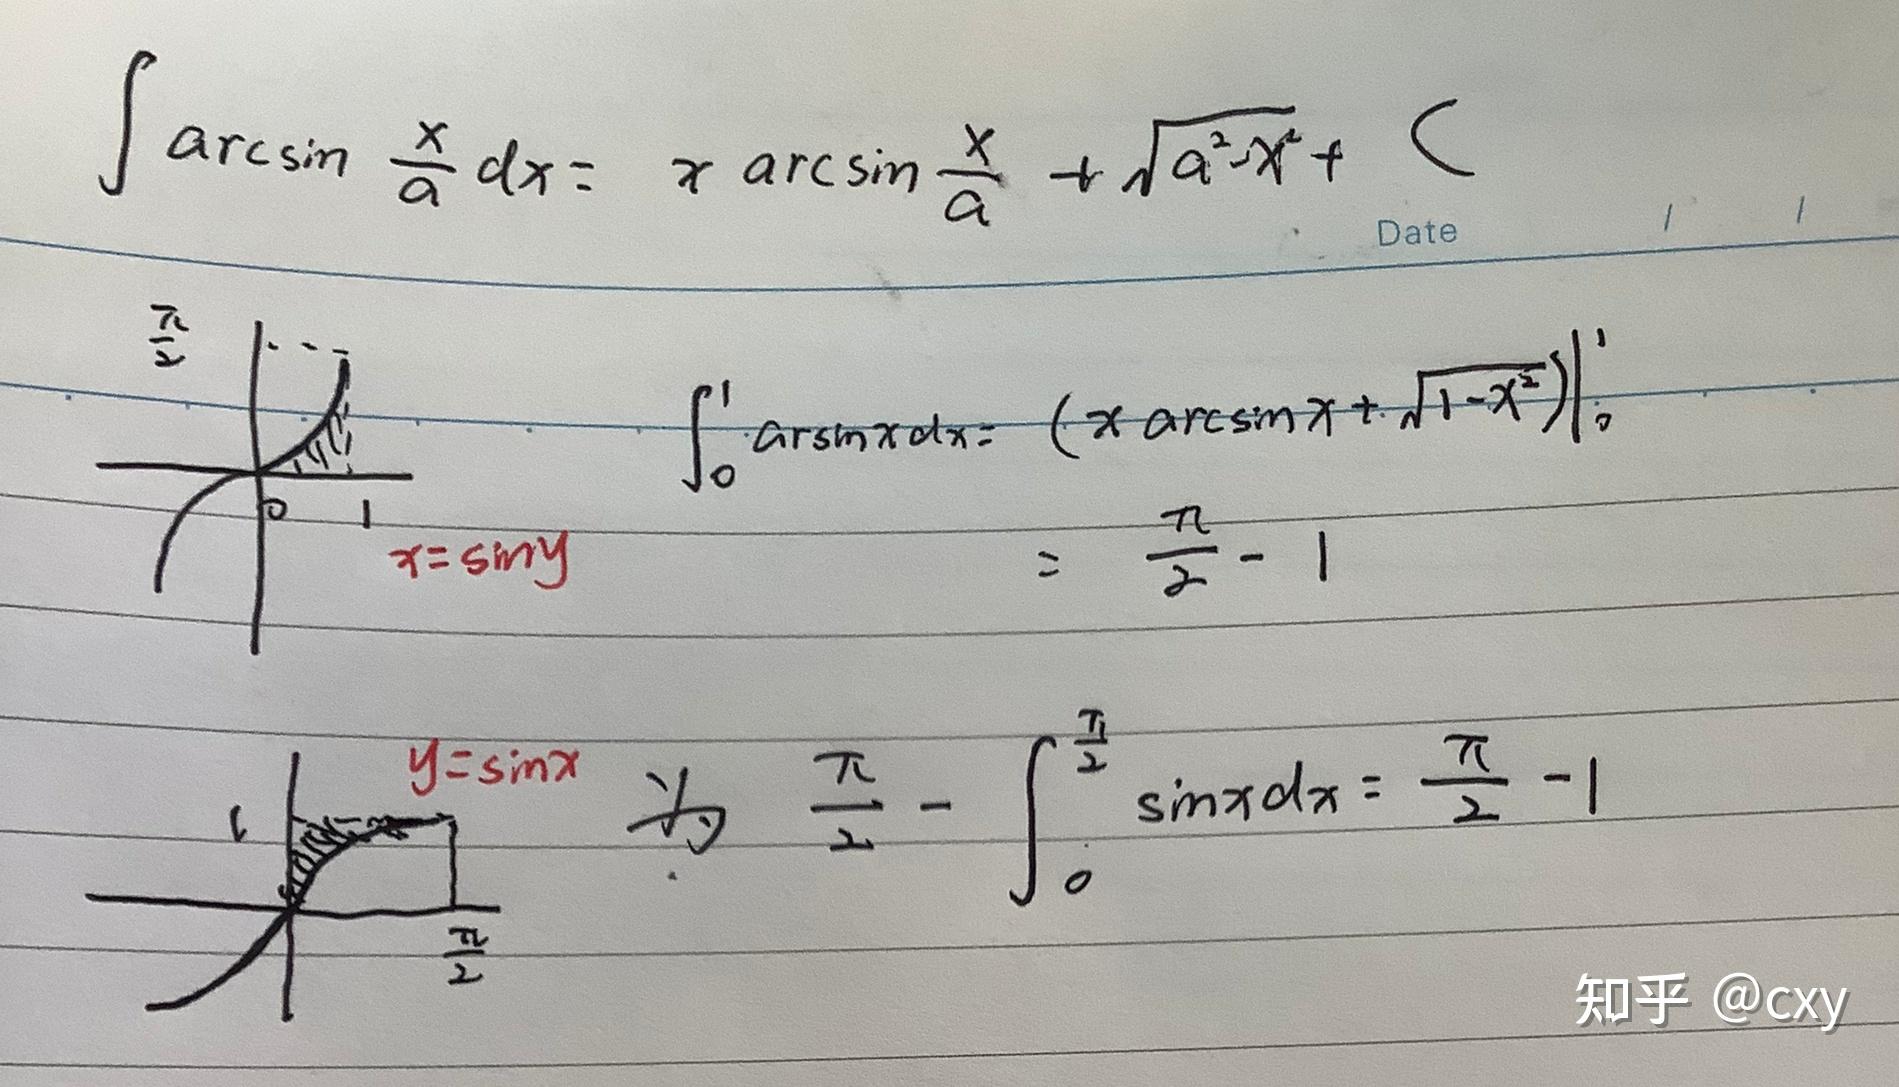 ∫ arcsin x/a dx = x arcsin x/a + √(a²-x²) + C
Date / /
π/2
0 1
x=siny
∫₀¹ arsinxdx = (x arcsinx + √(1-x²))|₀¹
= π/2 - 1
y=sinx
1
π/2
为 π/2 - ∫₀^(π/2) sinxdx = π/2 - 1
知乎 @cxy